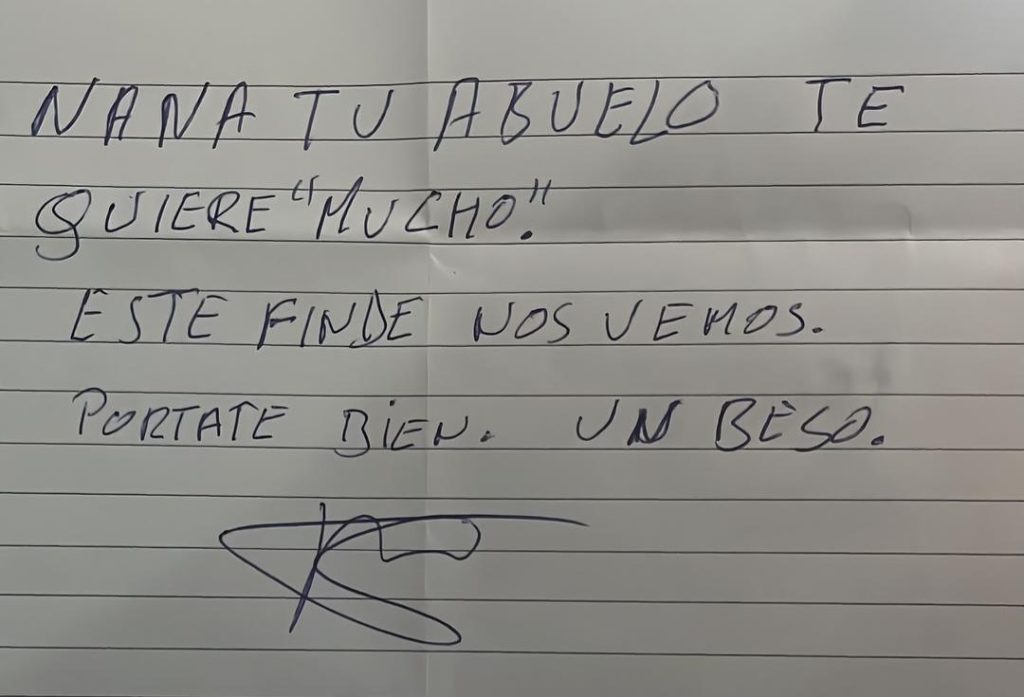 NANA TU ABUELO TE
QUIERE "MUCHO."
ESTE FINDE NOS VEMOS.
PORTATE BIEN. UN BESO.